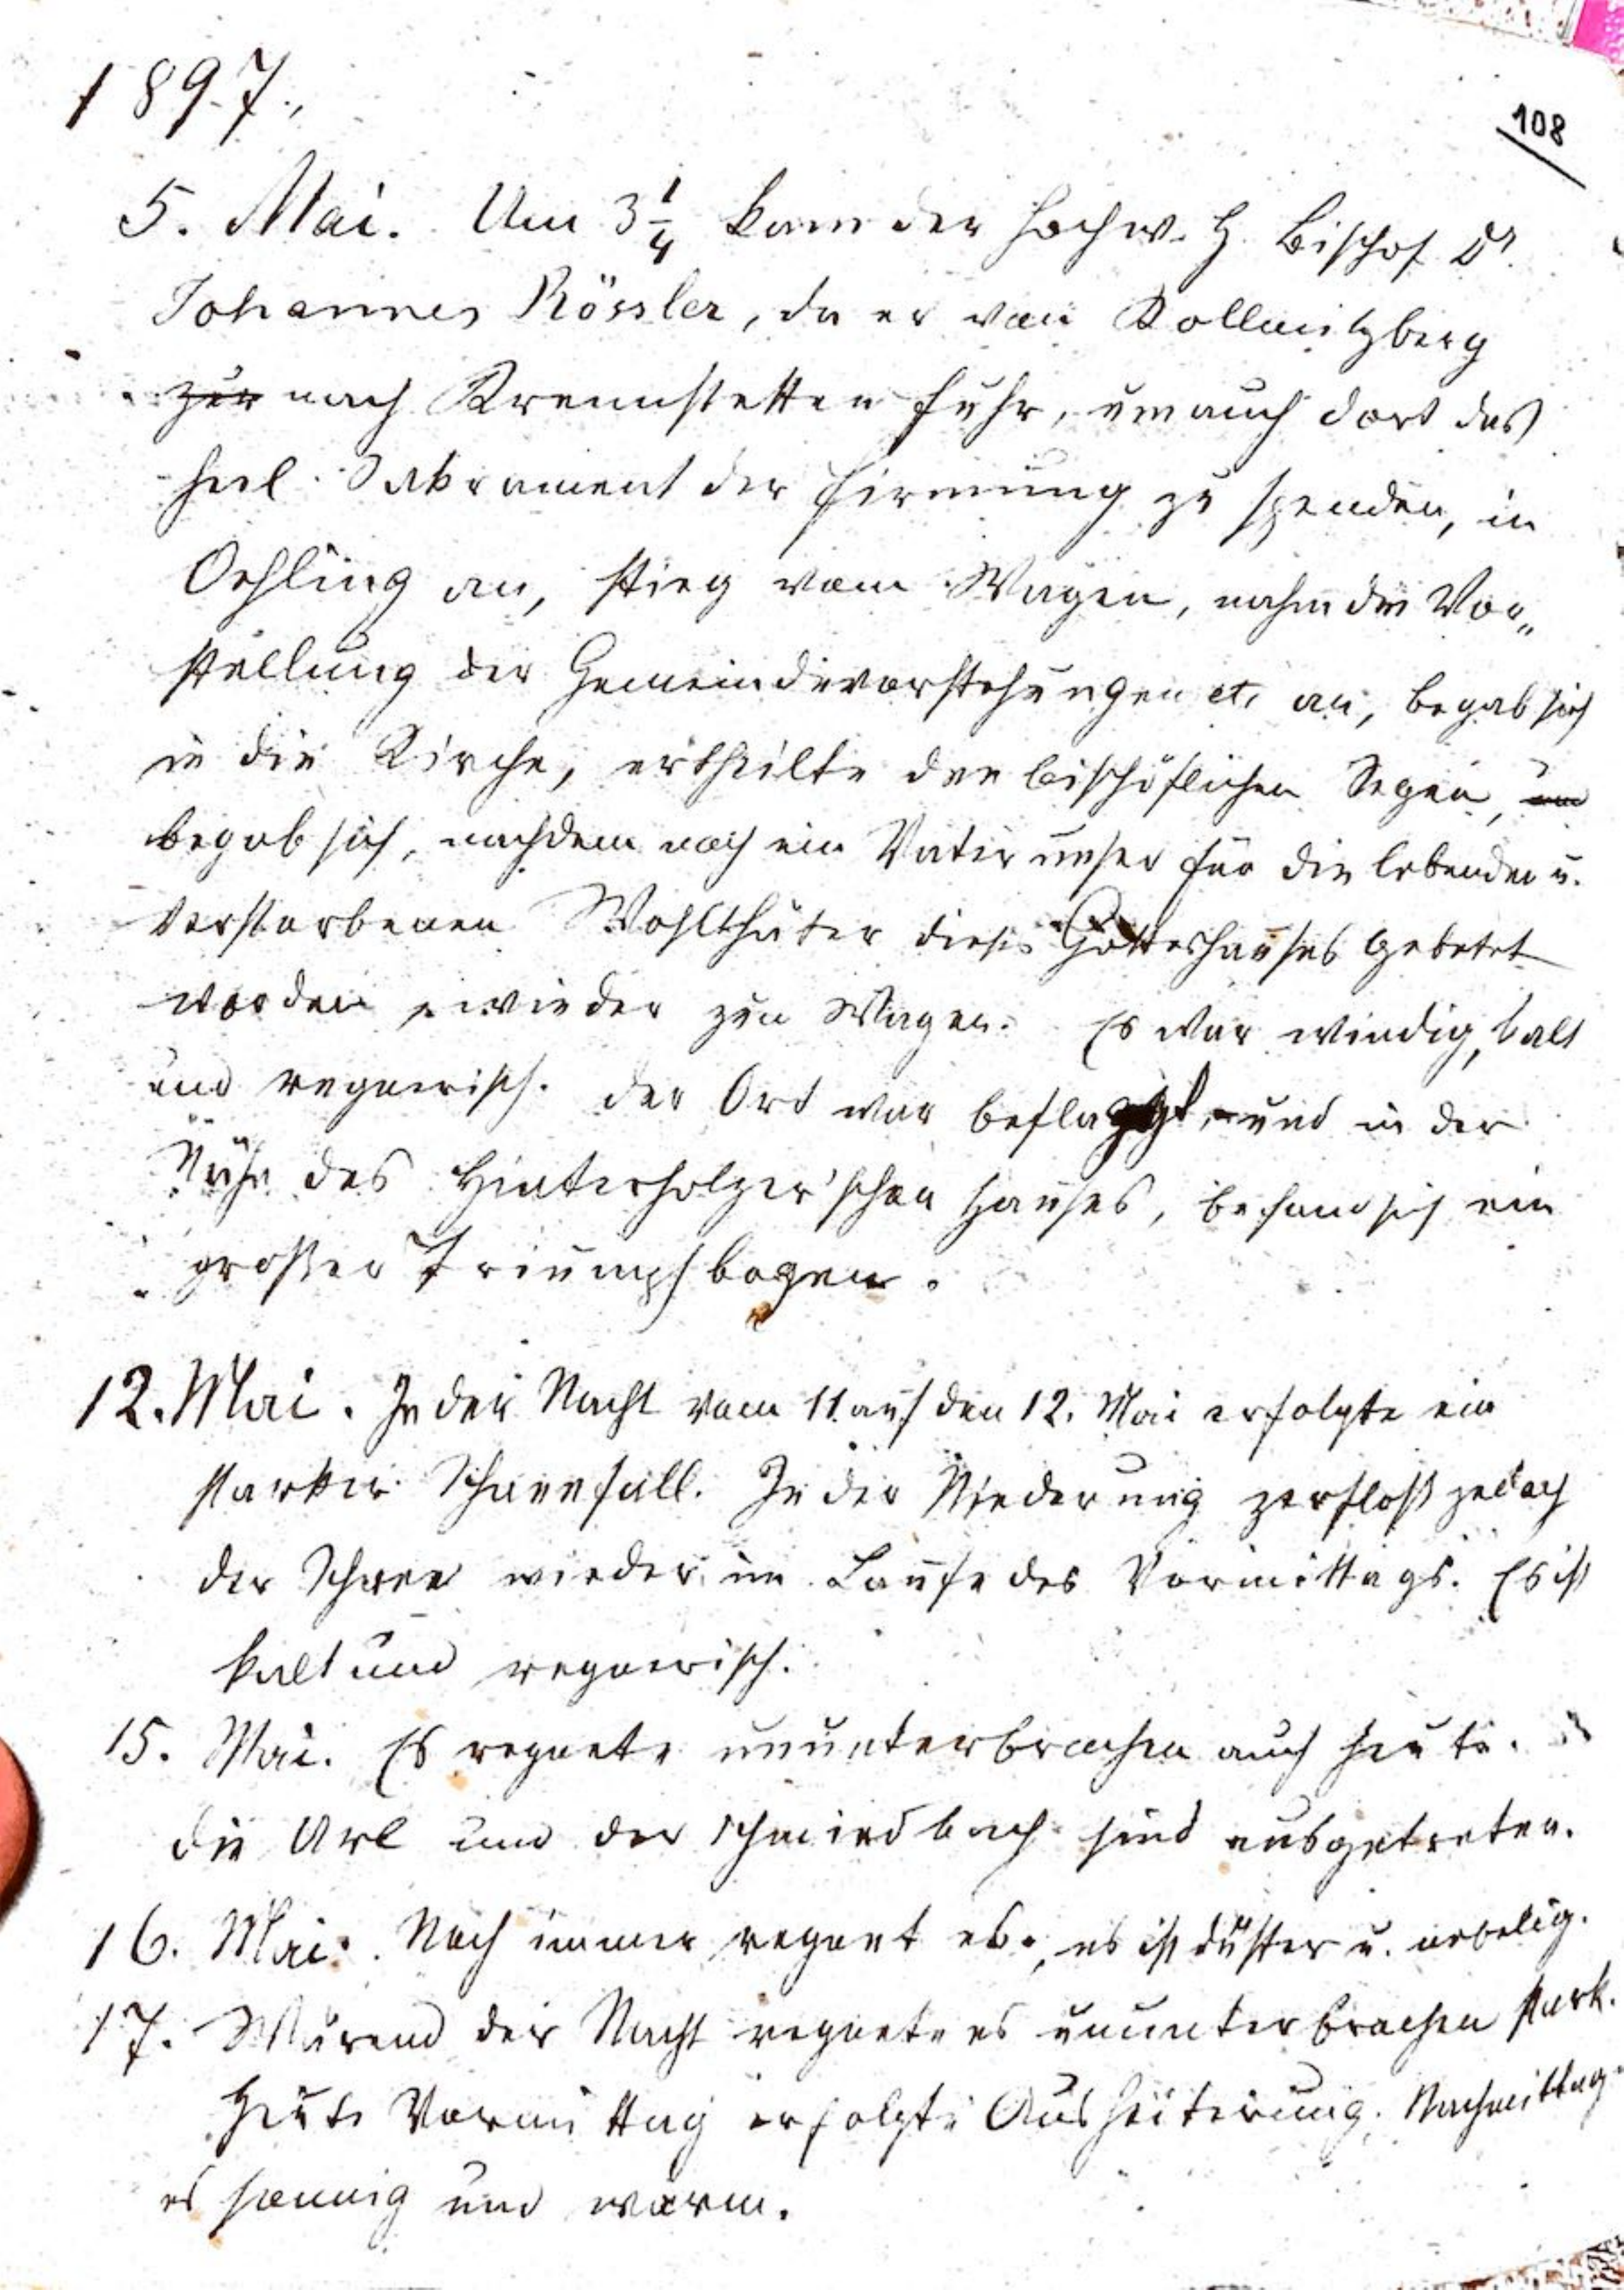 1897.,
108
5. Mai. Um 3 1/4 kam der hochw. H. Bischof Dr.
Johannes Rössler, da er von Kollmitzberg
zur nach Krennstetten fuhr, um auch dort das
heil. Sakrament der Firmung zu spenden, in
Oehling an, stieg vom Wagen, nahm die Vor„
stellung der Gemeindevorstehungen etc. an, begab sich
in die Kirche, ertheilte den bischöflichen Segen, un
begab sich, nachdem noch ein Vater unser für die lebenden u.
verstorbenen Wohlthäter dieses Gotteshauses gebetet
worden, wieder zum Wagen. Es war windig, kalt
und regnerisch. Der Ort war beflaggt, und in der
Nähe des Hinterholzer'schen Hauses, befand sich ein
großer Triumphbogen.
12. Mai. In der Nacht vom 11. auf den 12. Mai erfolgte ein
starker Schneefall. In der Niederung zerfloß jedoch
der Schnee wieder im Laufe des Vormittags. Es ist
kalt und regnerisch.
15. Mai. Es regnete ununterbrochen auch heute.
Die Url und der Schmiedbach sind ausgetreten.
16. Mai. Noch immer regnet es., es ist düster u. nebelig.
17. Wärend der Nacht regnete es ununterbrochen stark.
Heute Vormittag erfolgte Ausheiterung. Nachmittag
es sonnig und warm.